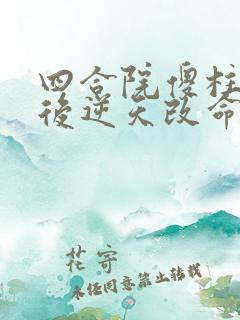 四合院傻柱
後逆天改命
花寄
未经同意禁止转载